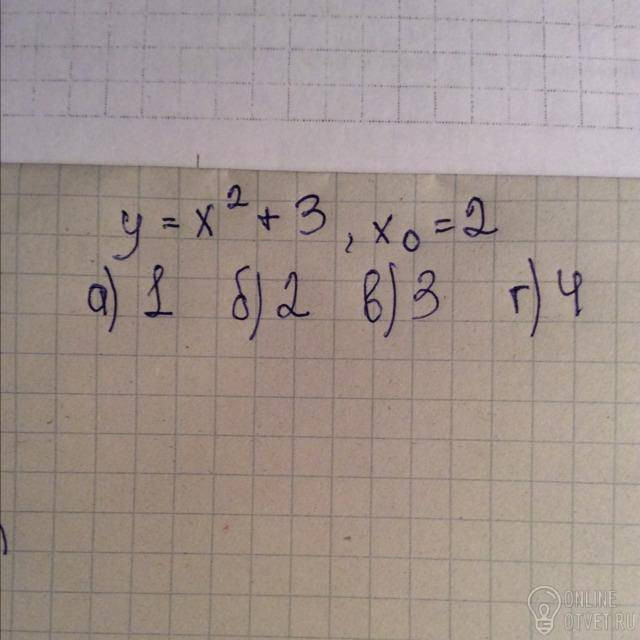 y = x² + 3, x₀ = 2
а) 1 б) 2 в) 3 г) 4
ONLINE
OTVET.RU